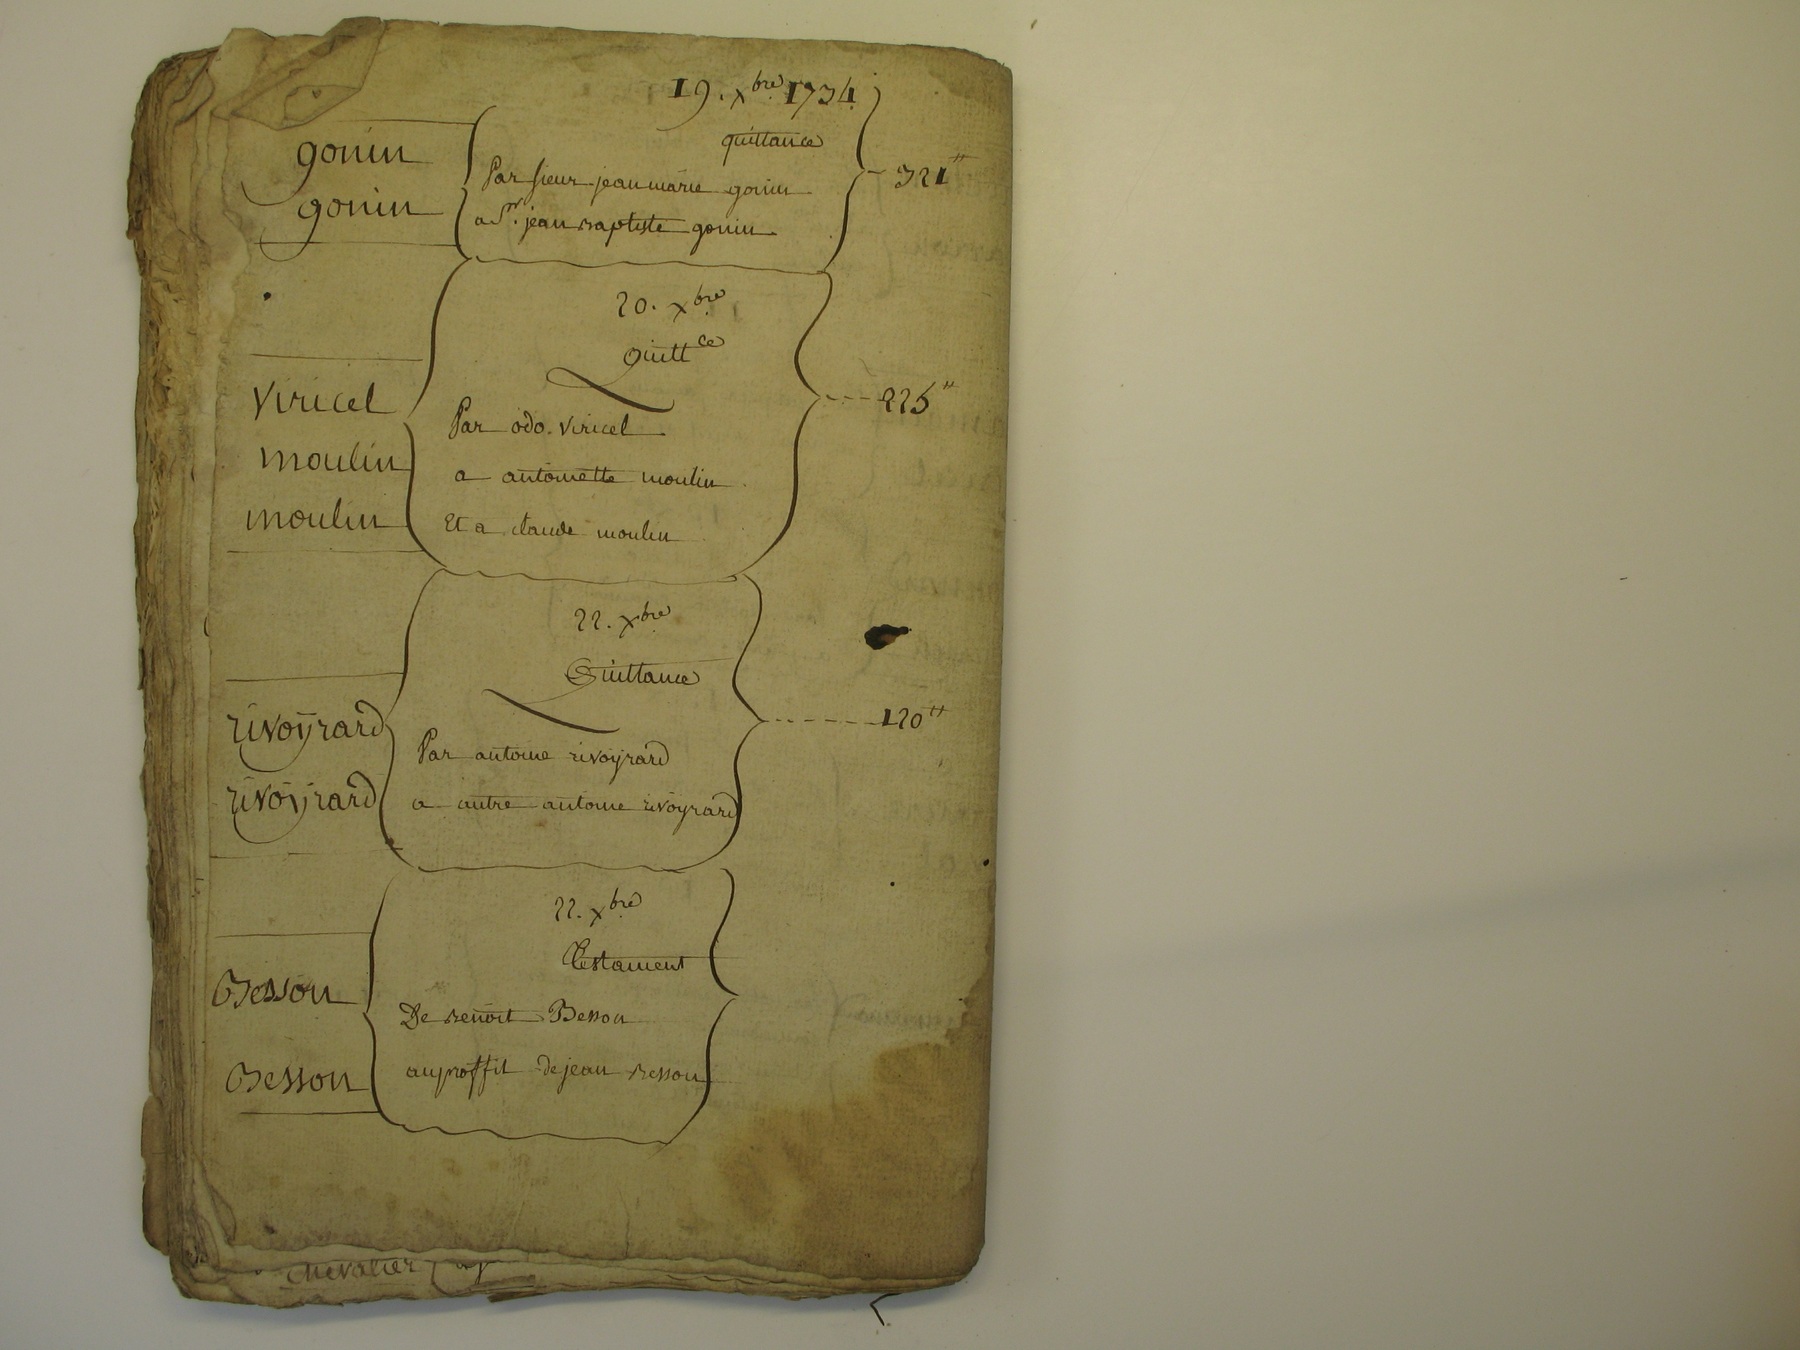 19. xbre 1734
quittance
gonin
gonin
Par sieur jean marie gonin
a Sr. jean baptiste gonin
321"
20. xbre
Quittce
viricel
moulin
moulin
Par odo. viricel
a antoinette moulin
Et a claude moulin
225"
22. xbre
Quittance
rivoÿrard
rivoÿrard
Par antoine rivoyrard
a autre antoine rivoyrard
120"
22. xbre
Testament
Besson
Besson
De benoit Besson
au proffit de jean besson
chevalier